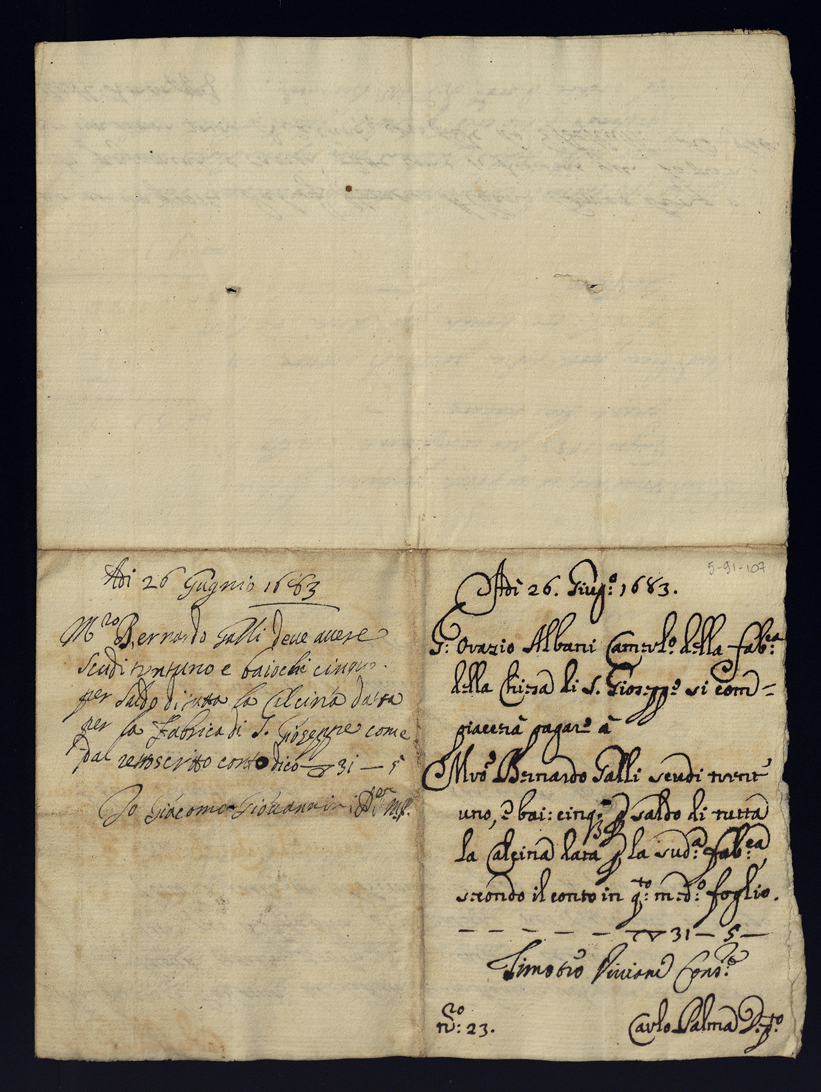 Adi 26 Gugnio 1683
M.ro Bernardo Galli deue auere
scudi trntuno e baiochi cinno.
per saldo di tutta la Calcina data
per la Fabrica di S. Gioseppe come
dal retroscritto conto dico ▽ 31 — 5
Io Giacomo Giouannini
5-91-107
Adi 26. Giug.o 1683.
S.r Orazio Albani Camerl.o della fab.ca
della Chiesa di S. Giosepp.o si com=
piacerà pagar.e à
Mro Bernardo Galli scudi trent'
uno, e bai: cinq.e p saldo di tutta
la Calcina data p la sud.a fab.ca
secondo il conto in q.to med.o foglio.
— — — — — — ▽ 31 — 5 —
Timoteo Viviani
n.ro: 23.
Carlo Palma